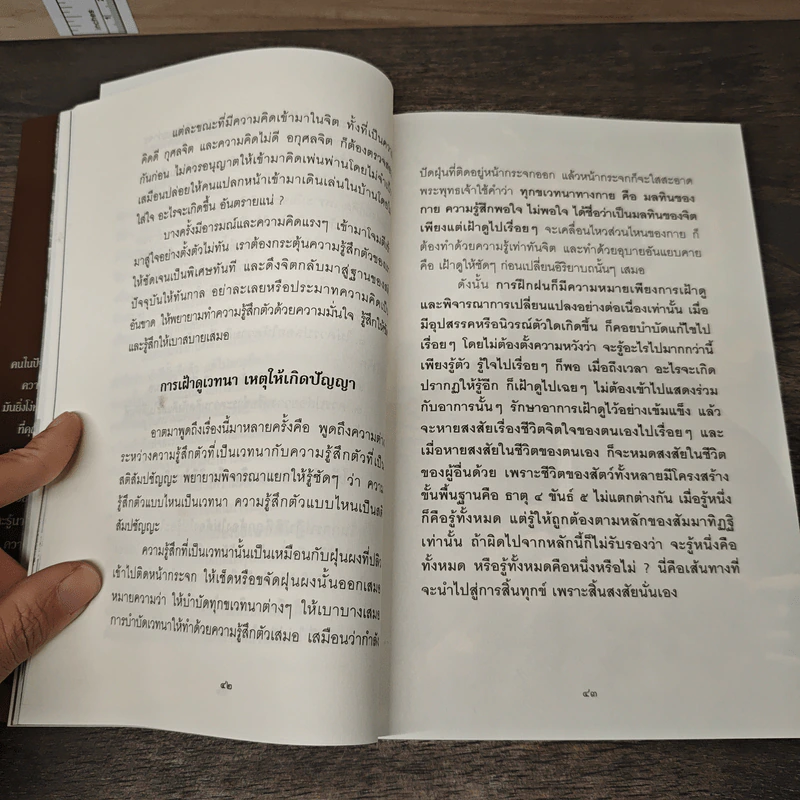 แต่ละขณะที่มีความคิดเข้ามาในจิต ทั้งที่เป็นความ
คิดดี กุศลจิต และความคิดไม่ดี อกุศลจิต ก็ต้องตรวจ
กันก่อน ไม่ควรอนุญาตให้เข้ามาคิดเพ่นพ่านโดยไม่
เสมือนปล่อยให้คนแปลกหน้าเข้ามาเดินเล่นในบ้านโดย
ใส่ใจ อะไรจะเกิดขึ้น อันตรายแน่ ?
บางครั้งมีอารมณ์และความคิดแรงๆ เข้ามาโจมตี
มาสู่ใจอย่างตั้งตัวไม่ทัน เราต้องกระตุ้นความรู้สึกตัวของ
ให้ชัดเจนเป็นพิเศษทันที และดึงจิตกลับมาสู่ฐานของ
ปัจจุบันให้ทันกาล อย่าละเลยหรือประมาทความคิด
อันขาด ให้พยายามทำความรู้สึกตัวด้วยความมั่นใจ รู้สึกให้
และรู้สึกให้เบาสบายเสมอ
การเฝ้าดูเวทนา เหตุให้เกิดปัญญา
อาตมาพูดถึงเรื่องนี้มาหลายครั้งคือ พูดถึงความต่าง
ระหว่างความรู้สึกตัวที่เป็นเวทนากับความรู้สึกตัวที่เป็น
สติสัมปชัญญะ พยายามพิจารณาแยกให้รู้ชัดๆ ว่า ความ
รู้สึกตัวแบบไหนเป็นเวทนา ความรู้สึกตัวแบบไหนเป็นสติ
สัมปชัญญะ
ความรู้สึกที่เป็นเวทนานั้นเป็นเหมือนกับฝุ่นผงที่ปลิว
เข้าไปติดหน้ากระจก ให้เช็ดหรือขจัดฝุ่นผงนั้นออกเสมอ
หมายความว่า ให้บำบัดทุกขเวทนาต่างๆ ให้เบาบางเสมอ
การบำบัดเวทนาให้ทำด้วยความรู้สึกตัวเสมอ เสมือนว่ากำลัง
๔๒
ปัดฝุ่นที่ติดอยู่หน้ากระจกออก แล้วหน้ากระจกก็จะใสสะอาด
พระพุทธเจ้าใช้คำว่า ทุกขเวทนาทางกาย คือ มลทินของ
กาย ความรู้สึกพอใจ ไม่พอใจ ได้ชื่อว่าเป็นมลทินของจิต
เพียงแต่เฝ้าดูไปเรื่อยๆ จะเคลื่อนไหวส่วนไหนของกาย ก็
ต้องทำด้วยความรู้เท่าทันจิต และทำด้วยอุบายอันแยบคาย
คือ เฝ้าดูให้ชัดๆ ก่อนเปลี่ยนอิริยาบถนั้นๆ เสมอ
ดังนั้น การฝึกฝนก็มีความหมายเพียงการเฝ้าดู
และพิจารณาการเปลี่ยนแปลงอย่างต่อเนื่องเท่านั้น เมื่อ
มีอุปสรรคหรือนิวรณ์ตัวใดเกิดขึ้น ก็คอยบำบัดแก้ไขไป
เรื่อยๆ โดยไม่ต้องตั้งความหวังว่า จะรู้อะไรไปมากกว่านี้
เพียงรู้ตัว รู้ใจไปเรื่อยๆ ก็พอ เมื่อถึงเวลา อะไรจะเกิด
ปรากฏให้รู้อีก ก็เฝ้าดูไปเฉยๆ ไม่ต้องเข้าไปแสดงร่วม
กับอาการนั้นๆ รักษาอาการเฝ้าดูไว้อย่างเข้มแข็ง แล้ว
จะหายสงสัยเรื่องชีวิตจิตใจของตนเองไปเรื่อยๆ และ
เมื่อหายสงสัยในชีวิตของตนเอง ก็จะหมดสงสัยในชีวิต
ของผู้อื่นด้วย เพราะชีวิตของสัตว์ทั้งหลายมีโครงสร้าง
ขั้นพื้นฐานคือ ธาตุ ๔ ขันธ์ ๕ ไม่แตกต่างกัน เมื่อรู้หนึ่ง
ก็คือรู้ทั้งหมด แต่รู้ให้ถูกต้องตามหลักของสัมมาทิฏฐิ
เท่านั้น ถ้าผิดไปจากหลักนี้ก็ไม่รับรองว่า จะรู้หนึ่งคือ
ทั้งหมด หรือรู้ทั้งหมดคือหนึ่งหรือไม่ ? นี่คือเส้นทางที่
จะนำไปสู่การสิ้นทุกข์ เพราะสิ้นสงสัยนั่นเอง
๔๓